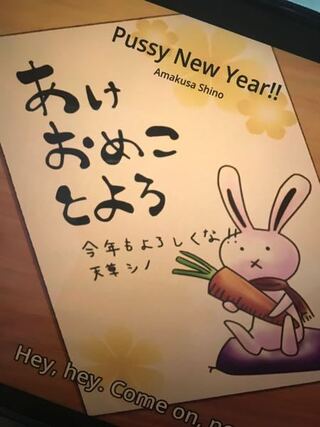 Pussy New Year!!
Amakusa Shino
あけ
おめこ
とよろ
今年もよろしくな!!
天草シノ
Hey, hey. Come on,